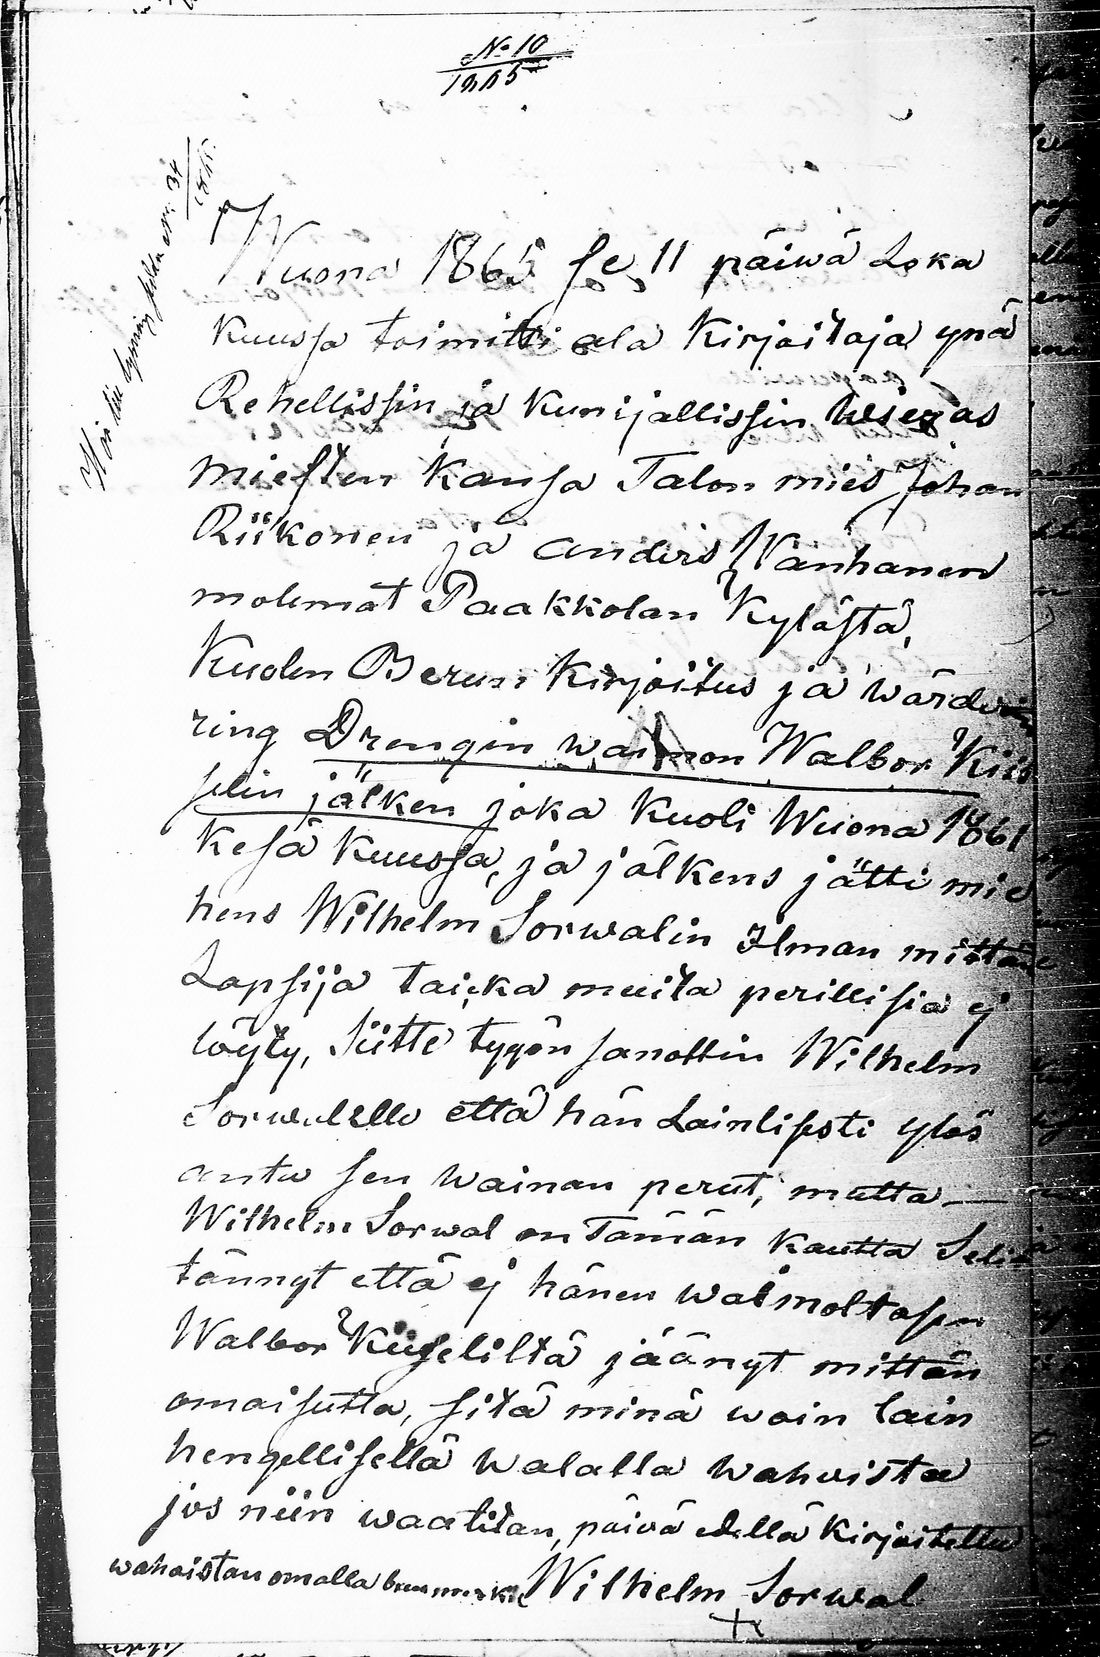 No 10
1865
Wuona 1865 se 11 päiwä Loka
kuussa toimitti ala Kirjoitaja ynä
Rehellissin ja kunijallissin
miesten kansa Talon mies Johan
Riikonen ja anders Wanhanen
molemat Paakkolan Kylästä,
Kuolen Berun Kirjoitus ja wärde
ring Drengin waimon Walbor Kiis
selin jälken joka Kuoli Wuona 1861
kesä kuussa, ja jälkens jätti mie
hens Wilhelm Sorwalin Ilman mittän
Lapsija taicka muita perillisia ej
löyty, Siitte tygön sanottin Wilhelm
Sorwalille että hän Lainlisesti ylös
anta sen wainan perut, mutta
Wilhelm Sorwal on Tämän kautta Selit
tännyt että ej hänen waimoltasen
Walbor Kiiseliltä jäänyt mittän
omaisutta, sitä minä woin lain
hengellisellä walalla wahwista
jos niin waatitan, päivä edellä Kirjoitettu
wahwistan omalla Wilhelm Sorwal